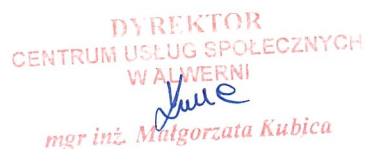 DYREKTOR
CENTRUM USŁUG SPOŁECZNYCH
W ALWERNI
mgr inż. Małgorzata Kubica